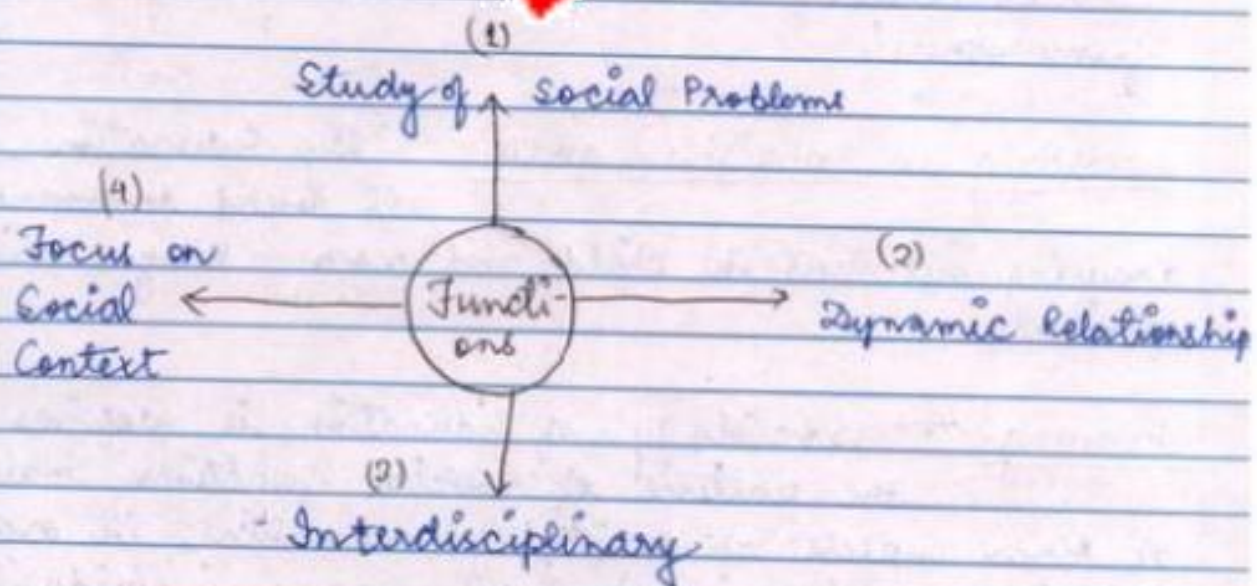 (1)
Study of Social Problems
(4)
Focus on
Social
Context
Functi-
ons
(2)
Dynamic Relationship
(3)
Interdisciplinary